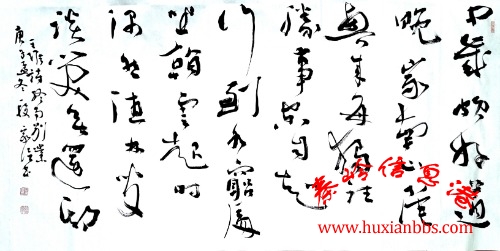 中歲頗好道
晚家南山陲
興來每獨往
勝事空自知
行到水窮處
坐看雲起時
偶然值林叟
談笑無還期
王維詩終南別業
庚子孟冬
www.huxianbbs.com